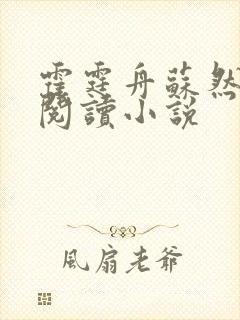 霍霆舟蘇然
閱讀小說
風扇老爺